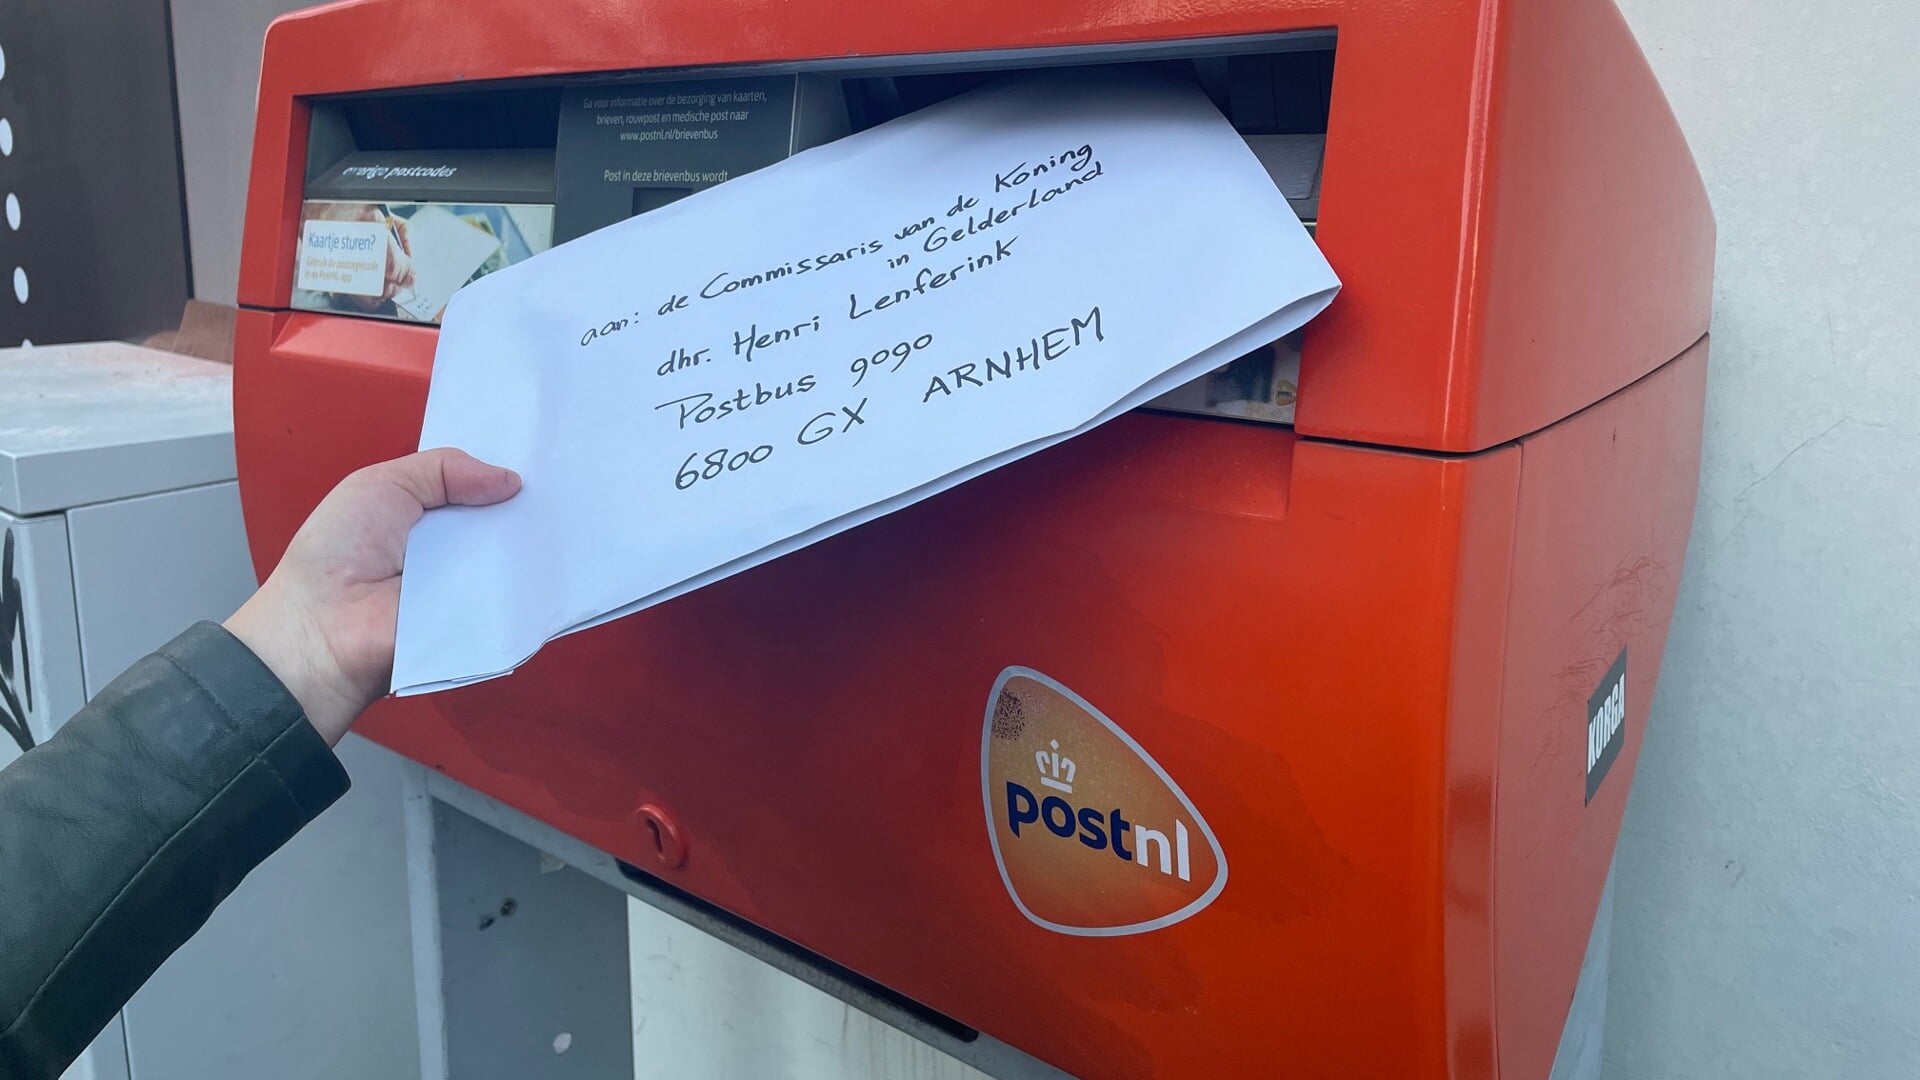 Ga voor informatie over de bezorging van kaarten,
brieven, rouwpost en medische post naar
www.postnl.nl/brievenbus
Post in deze brievenbus wordt
overige postcodes
Kaartje sturen?
Gebruik de postzegelcode
in de PostNL-app
aan: de Commissaris van de Koning
in Gelderland
dhr. Henri Lenferink
Postbus 9090
6800 GX ARNHEM
postnl
KORGA